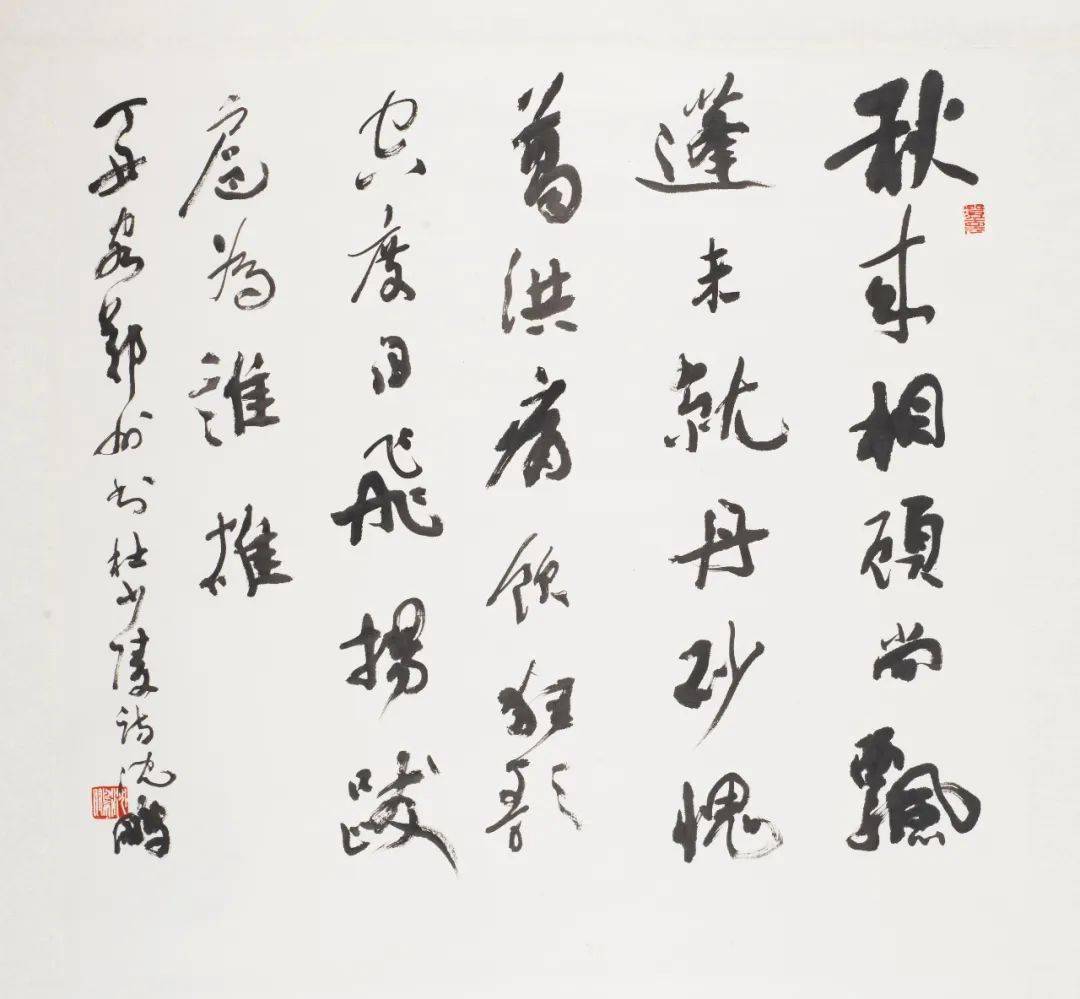 秋來相顧尚飄
蓬未就丹砂愧
葛洪痛飲狂歌
空度日飛揚跋
扈為誰雄
丁丑客鄭州書杜少陵詩沈鵬